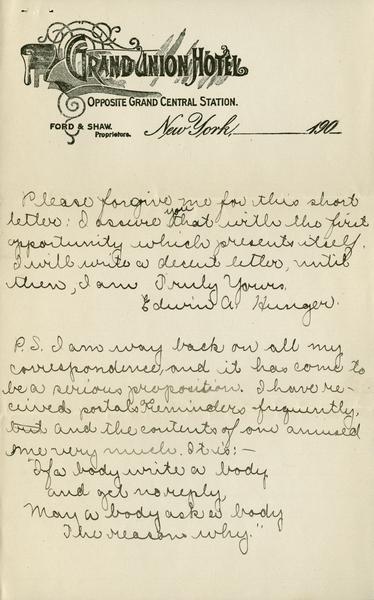 GRAND UNION HOTEL
OPPOSITE GRAND CENTRAL STATION.
FORD & SHAW.
Proprietors.
New York, 190
Please forgive me for this short
letter: I assure you that with the first
opportunity which presents itself.
I will write a decent letter, until
then, I am Truly Yours.
Edwin A. Hunger.
P.S. I am way back on all my
correspondence, and it has come to
be a serious proposition. I have re-
ceived postals & reminders frequently,
but and the contents of one amused
me very much. It is:—
"If a body write a body
and get no reply
May a body ask a body
The reason why."